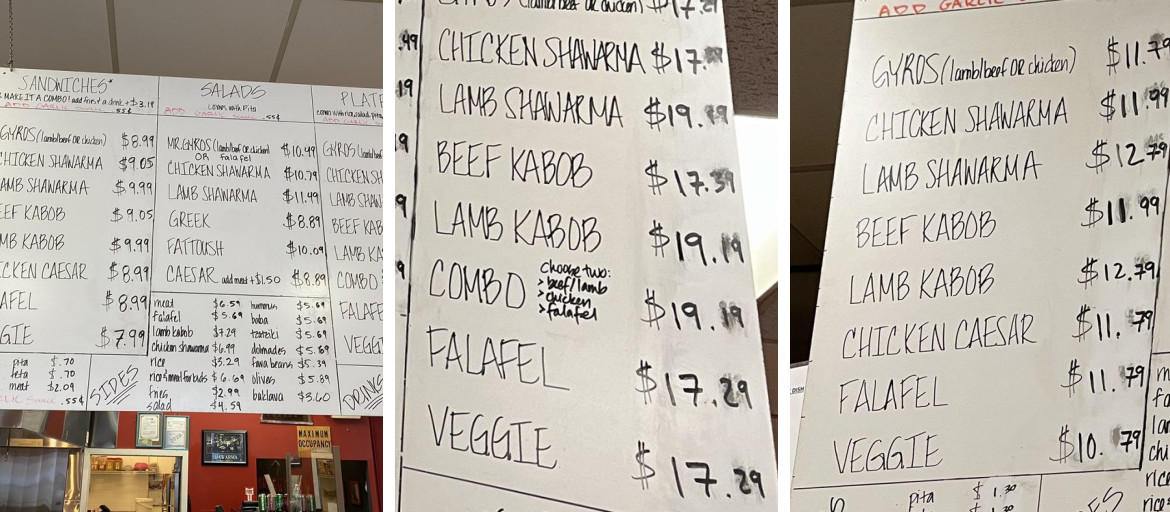 SANDWICHES*
MAKE IT A COMBO! add fries & a drink + $3.19
.55¢
GYROS (lamb/beef OR chicken) $8.99
CHICKEN SHAWARMA $9.05
LAMB SHAWARMA $9.99
BEEF KABOB $9.05
LAMB KABOB $9.99
CHICKEN CAESAR $8.99
FALAFEL $8.99
VEGGIE $7.99
pita $.70
feta $.70
meat $2.09
.55¢
SIDES
SALADS
comes with Pita
ADD GARLIC SAUCE .55¢
MR.GYROS (lamb/beef OR chicken) $10.49
OR falafel
CHICKEN SHAWARMA $10.79
LAMB SHAWARMA $11.49
GREEK $8.89
FATTOUSH $10.09
CAESAR add meat +$1.50 $8.89
meat $6.59 hummus $5.69
falafel $5.69 baba $5.69
lamb kabob $7.29 tzatziki $5.69
chicken shawarma $6.99 dolmades $5.69
rice $3.29 fava beans $5.39
rice & meat for buds $6.69 olives $5.89
fries $2.99 baklava $3.60
salad $4.59
PLATE
GYROS (lamb/beef
CHICKEN SH
LAMB SHAW
BEEF KAB
LAMB KA
COMBO
FALAFE
VEGGI
DRINKS
MAXIMUM
OCCUPANCY
(lamb/beef OR chicken) $17.29
CHICKEN SHAWARMA $17.
LAMB SHAWARMA $19.19
BEEF KABOB $17.39
LAMB KABOB $19.19
COMBO $19.19
Choose two:
> beef/lamb
> chicken
> falafel
FALAFEL $17.29
VEGGIE $17.29
.49
19
9
9
9
ADD GARLIC
GYROS (lamb/beef OR chicken) $11.79
CHICKEN SHAWARMA $11.99
LAMB SHAWARMA $12.79
BEEF KABOB $11.99
LAMB KABOB $12.79
CHICKEN CAESAR $11.79
FALAFEL $11.79
VEGGIE $10.79
pita $1.30
m
fa
lar
chi
rice
rice